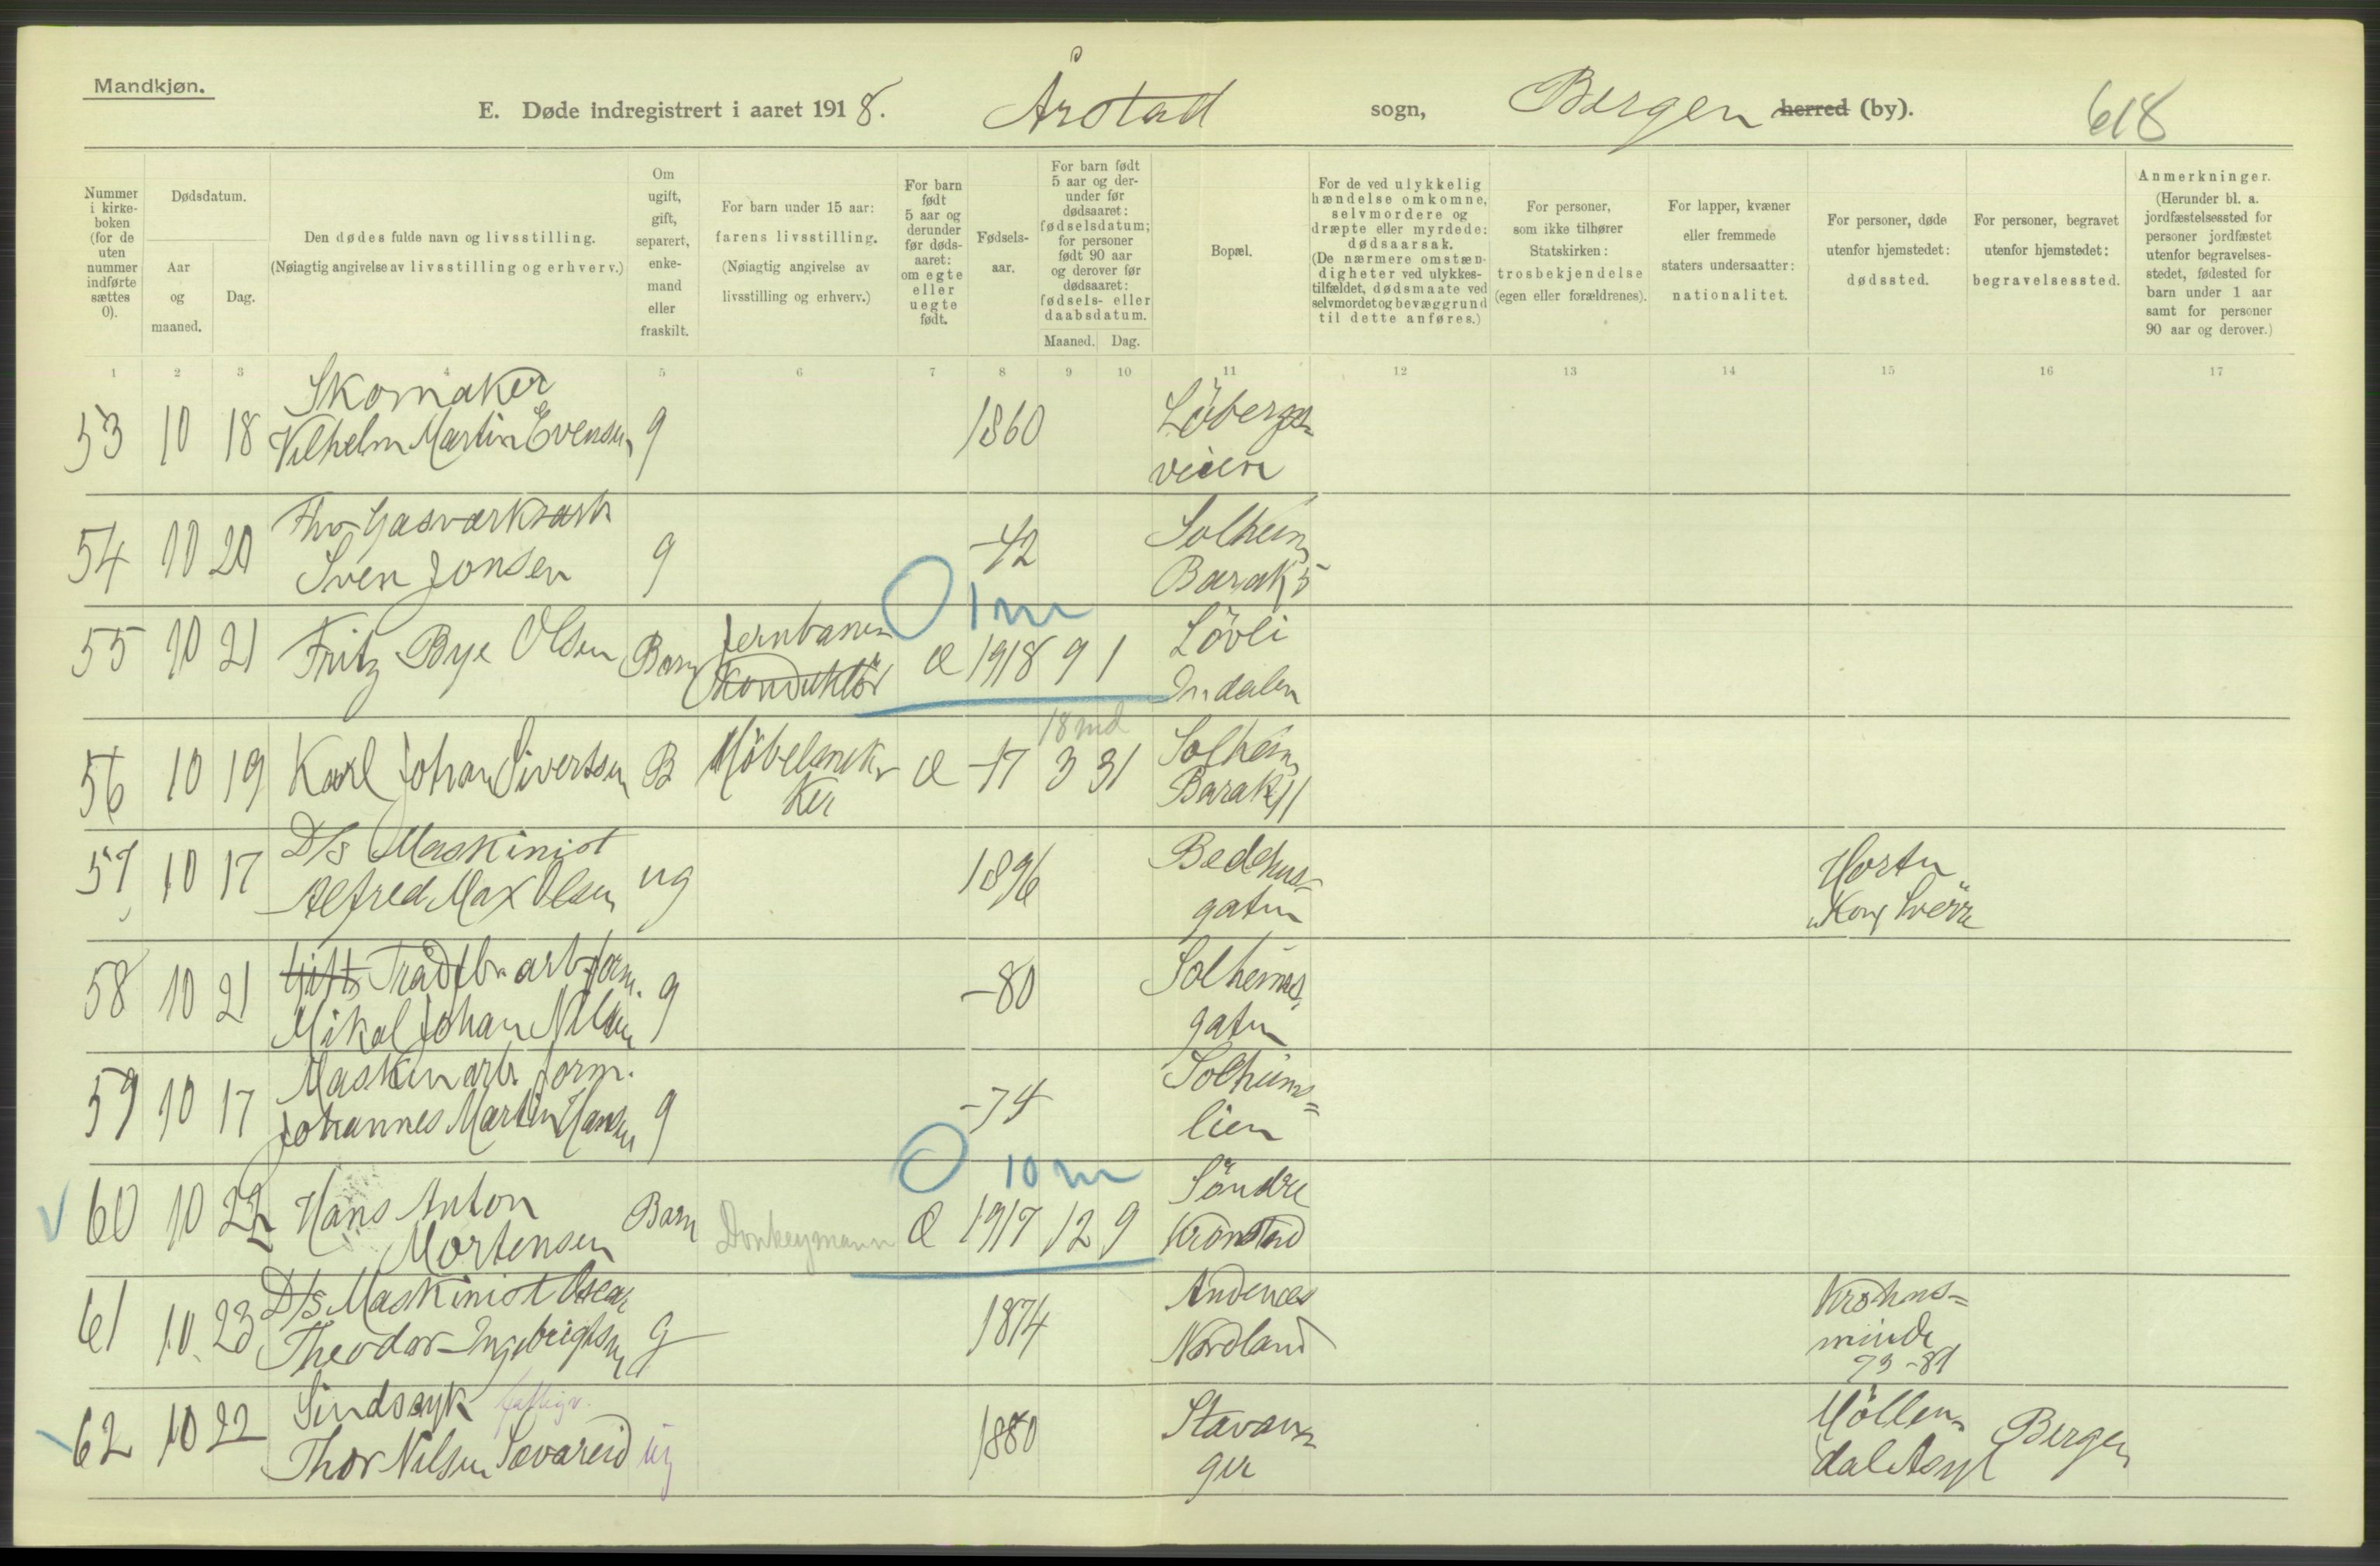 Mandkjøn.
E. Døde indregistrert i aaret 1918. Årstad sogn, Bergen herred (by). 618
Nummer i kirke-boken (for de uten nummer indførte sættes 0).
Dødsdatum.
Aar og maaned.
Dag.
Den dødes fulde navn og livsstilling.
(Nøiagtig angivelse av livsstilling og erhverv.)
Om ugift, gift, separert, enke-mand eller fraskilt.
For barn under 15 aar: farens livsstilling.
(Nøiagtig angivelse av livsstilling og erhverv.)
For barn født 5 aar og derunder før døds-aaret: om egte eller uegte født.
Fødsels-aar.
For barn født 5 aar og der-under før dødsaaret: fødselsdatum; for personer født 90 aar og derover før dødsaaret: fødsels- eller daabsdatum.
Maaned. Dag.
Bopæl.
For de ved ulykkelig hændelse omkomne, selvmordere og dræpte eller myrdede: dødsaarsak.
(De nærmere omstæn-digheter ved ulykkes-tilfældet, dødsmaate ved selvmordet og bevæggrund til dette anføres.)
For personer, som ikke tilhører Statskirken: trosbekjendelse (egen eller forældrenes).
For lapper, kvæner eller fremmede staters undersaatter: nationalitet.
For personer, døde utenfor hjemstedet: dødssted.
For personer, begravet utenfor hjemstedet: begravelsessted.
Anmerkninger.
(Herunder bl. a. jordfæstelsessted for personer jordfæstet utenfor begravelses-stedet, fødested for barn under 1 aar samt for personer 90 aar og derover.)
1 2 3 4 5 6 7 8 9 10 11 12 13 14 15 16 17
Skomaker
53 10 18 Vilhelm Martin Evensen g 1860 Løbergs-
veien
Gasværksarb
54 10 20 Sven Jonsen g -42 Solheim
Barak 5
O 1 m
55 10 21 Fritz Bye Olsen Barn Jernbane-
konduktør æ 1918 9 1 Løvli
Indalen
18 md
56 10 19 Karl Johan Sivertsen B Møbelsnek-
ker æ -17 3 31 Solheim
Barak 11
D/s Maskinist
57 10 17 Alfred Max Olsen ug 1896 Bedehus-
gaten Horten
"Kong Sverre"
Trådfbr. arb. form.
58 10 21 Mikal Johan Nilsen g -80 Solheims-
gaten
Maskinarb. form.
59 10 17 Johannes Martin Hansen g -74 Solheims=
lien
O 10 m
60 10 22 Hans Anton
Mortensen Barn Donkeymann æ 1917 12 9 Søndre
Kronstad
D/s Maskinist Oscar
61 10 23 Theodor Ingebrigtsen g 1874 Andenes
Nordland Krohns=
minde
73-81
Sindssyk fattigv.
62 10 22 Thor Nilsen Sævareid ug 1880 Stavan-
ger Møllen-
dal Asyl Bergen